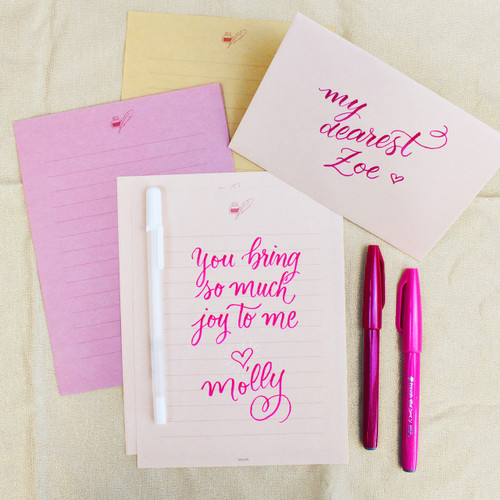 my
dearest
Zoe
You bring
so much
joy to me
molly